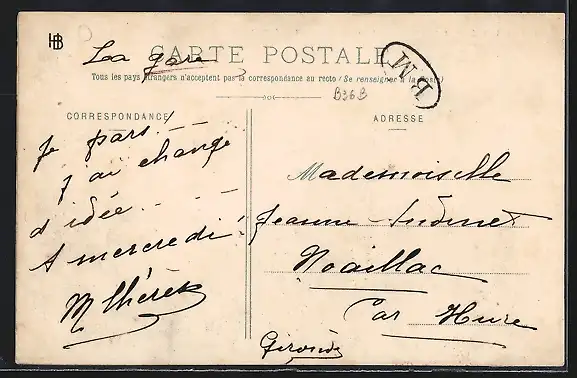 HB
La gare
CARTE POSTALE
BM
Tous les pays étrangers n'acceptent pas la correspondance au recto (Se renseigner à la Poste)
B36B
CORRESPONDANCE
Je pars!
J'ai changé
d'idée
A mercredi!
M Thérèse
ADRESSE
Mademoiselle
Jeanne
Noaillac
Par Hure
Gironde